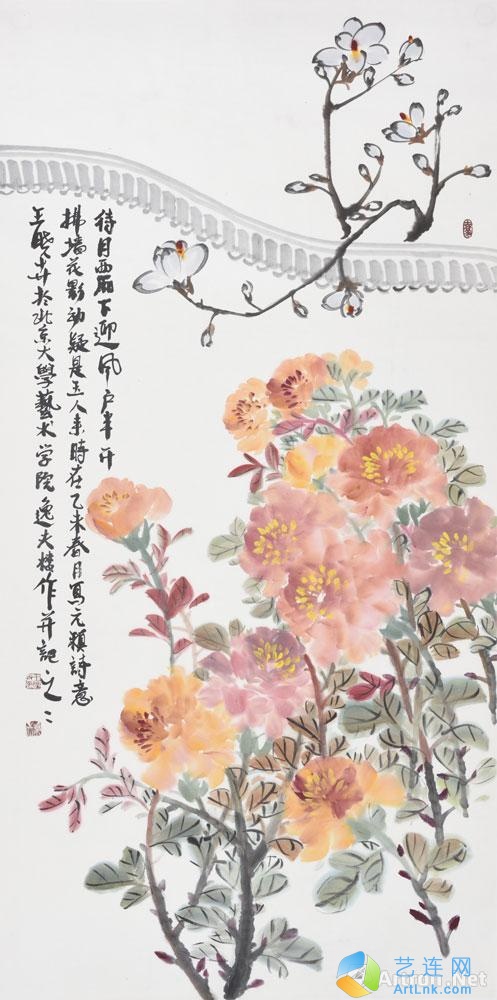 待月西厢下迎风户半开
拂墙花影动疑是玉人来時在乙未春月写元稹詩意
王晓卉於北京大學藝术学院逸夫楼作并記之
艺连网
ArtLnk.com